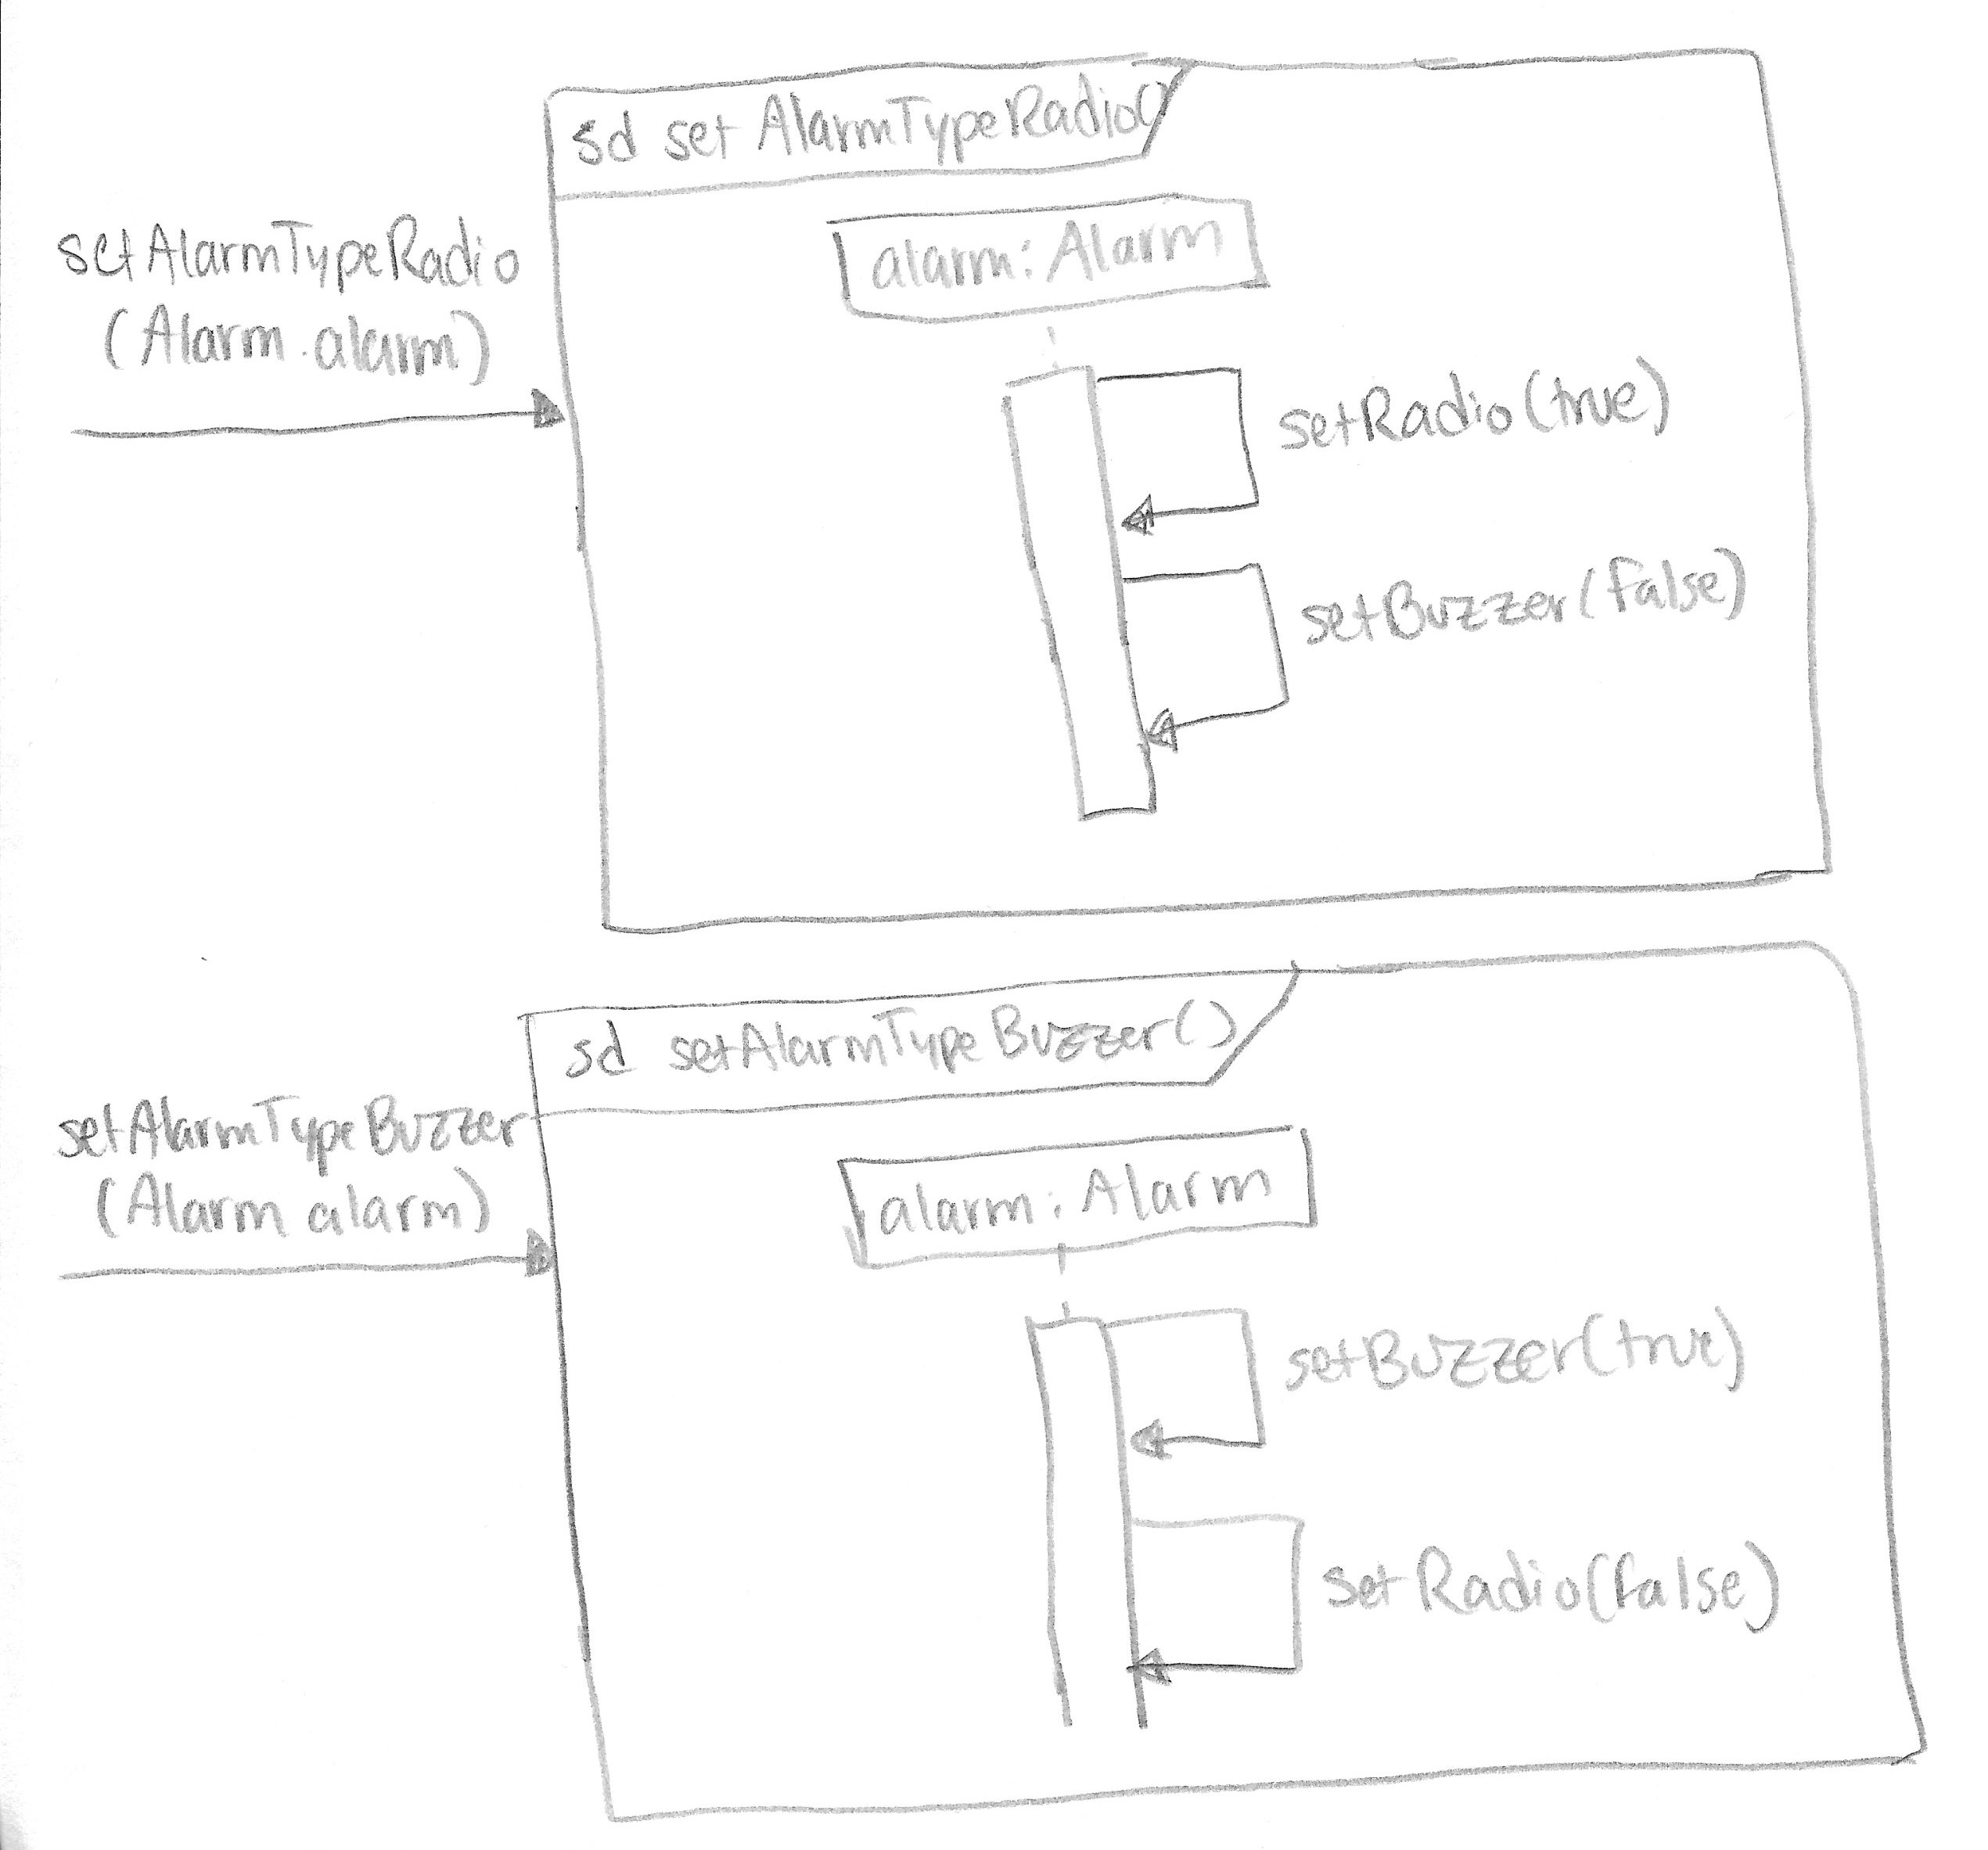 sd setAlarmTypeRadio()
setAlarmTypeRadio
(Alarm alarm)
alarm: Alarm
setRadio(true)
setBuzzer(false)
sd setAlarmTypeBuzzer()
setAlarmTypeBuzzer
(Alarm alarm)
alarm: Alarm
setBuzzer(true)
setRadio(false)